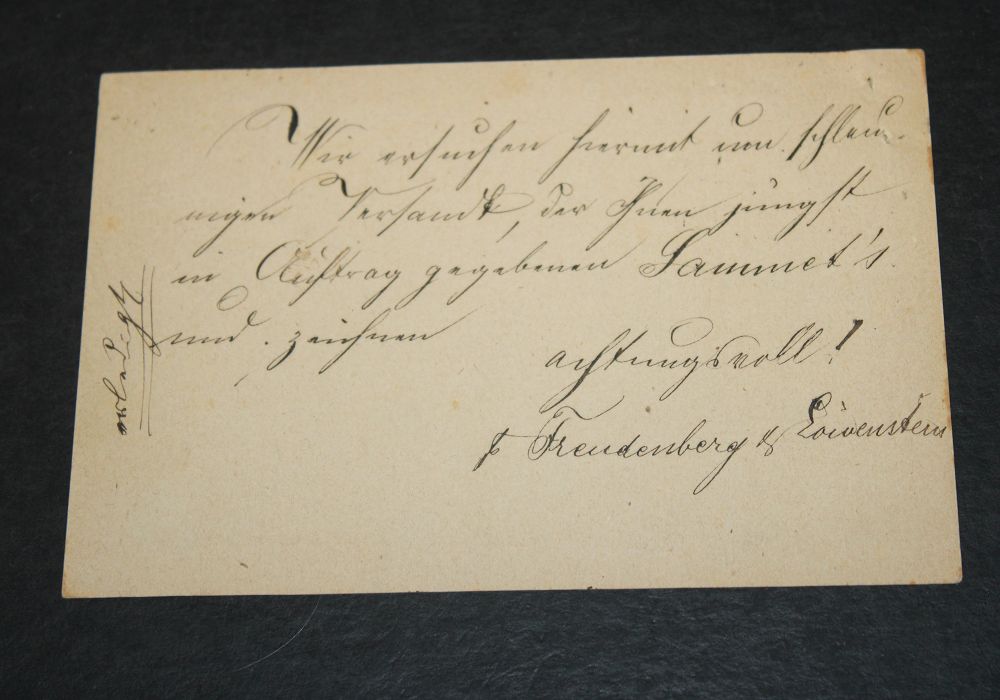 Wir ersuchen hiermit um schleu-
nigen Versandt, der Ihnen jüngst
in Auftrag gegebenen Sammet's
und zeichnen
achtungsvoll!
p Freudenberg & Löwenstein
erledigt